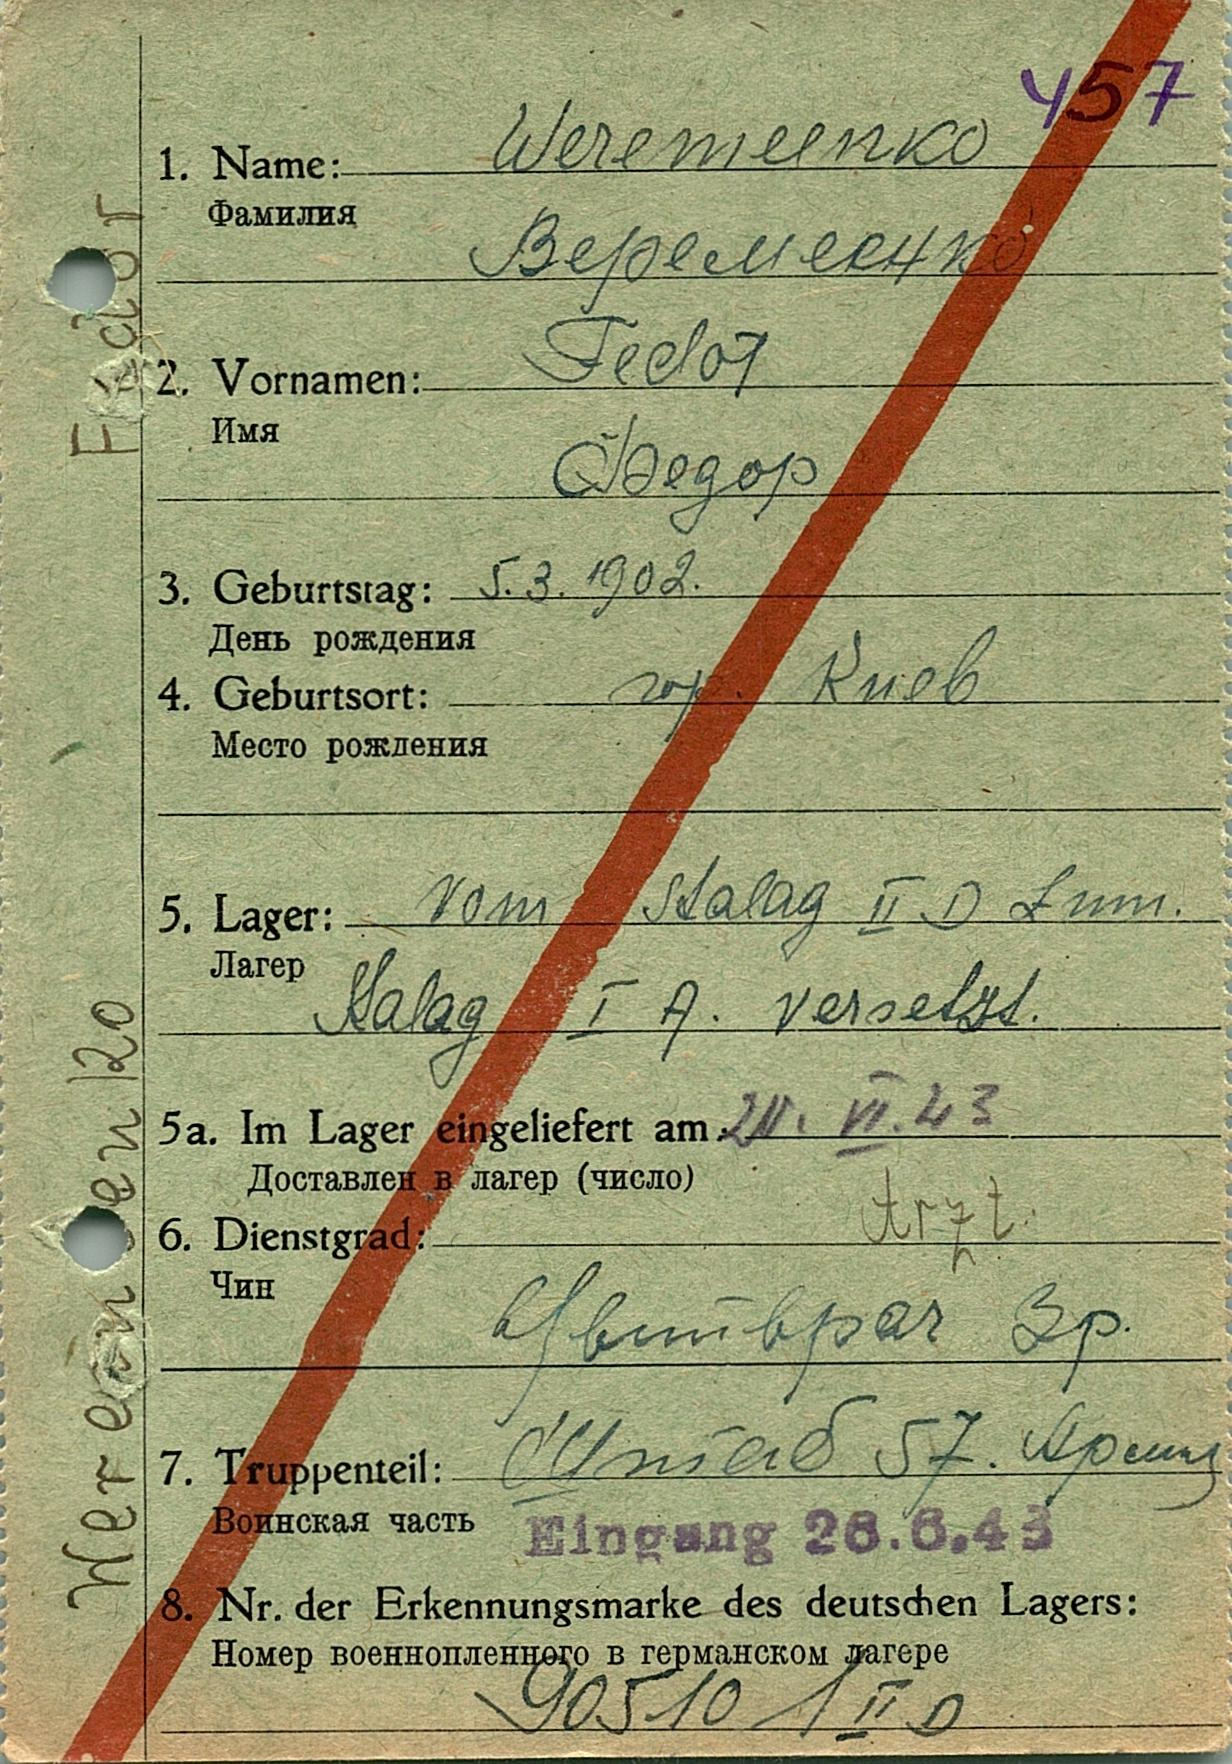 457
1. Name: Weremeenko
Фамилия
Веремеенко
2. Vornamen: Fedor
Имя
Федор
3. Geburtstag: 5.3.1902.
День рождения
4. Geburtsort: гор. Киев
Место рождения
5. Lager: vom Stalag II D zum.
Лагер
Stalag I A. versetzt.
5a. Im Lager eingeliefert am: VI.43
Доставлен в лагер (число)
6. Dienstgrad: Arzt.
Чин
3 р.
7. Truppenteil: Штаб 57. Армии
Воинская часть
Eingang 26.6.43
8. Nr. der Erkennungsmarke des deutschen Lagers:
Номер военнопленного в германском лагере
90510 / II D
Fedor